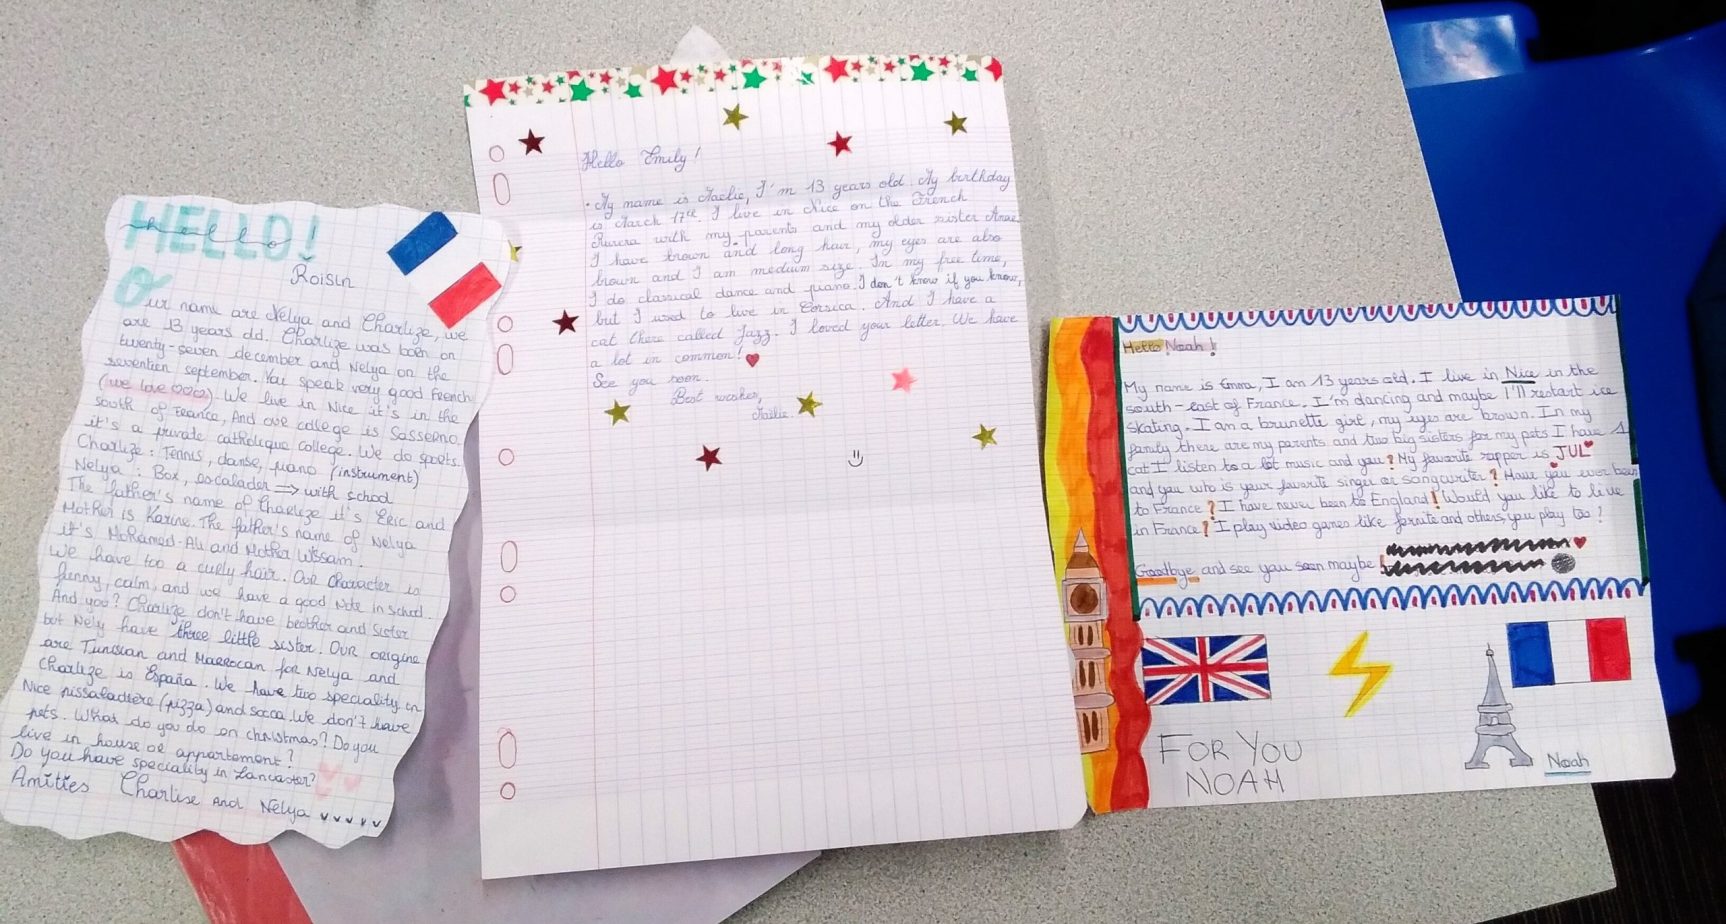 HELLO!
hello
Roisin
Our name are Nelya and Charlize, we
are 13 years old. Charlize was born on
twenty-seven december and Nelya on the
seventen september. You speak very good French
(we love ∞∞). We live in Nice it's in the
south of France, And our college is Sasserno.
it's a private catholique college. We do sports.
Charlize: Tennis, danse, piano (instrument)
Nelya: Box, escalader => with school
The father's name of Charlize it's Eric and
Mother is Karine. The father's name of Nelya
it's Mohamed-Ali and Mother Wissam.
We have too a curly hair. Our character is
funny, calm, and we have a good note in school.
And you? Charlize don't have brother and sister
but Nely have three little sister. Our origine
are Tunisian and Marrocan for Nelya and
Charlize is España. We have two speciality in
Nice pissaladiere (pizza) and socca. We don't have
pets. What do you do on christmas? Do you
live in house or appartement?
Do you have speciality in Lancaster?
Amities Charlise and Nelya
Hello Emily!
. My name is Maelie, I'm 13 years old. My birthday
is March 17th. I live in Nice on the French
Riviera with my parents and my older sister Anae
I have brown and long hair, my eyes are also
brown and I am medium size. In my free time,
I do classical dance and piano. I don't know if you know,
but I used to live in Corsica. And I have a
cat there called Jazz. I loved your letter. We have
a lot in common!
See you soon.
Best wishes,
Maelie.
Hello Noah!
My name is Emma, I am 13 years old. I live in Nice in the
south-east of France. I'm dancing and maybe I'll restart ice
skating. I am a brunette girl, my eyes are brown. In my
family there are my parents and two big sisters for my pets I have 1
cat I listen to a lot music and you? My favorite rapper is JUL
and you who is your favorite singer or songwriter? Have you ever been
to France? I have never been to England! Would you like to live
in France? I play video games like fornite and others, you play too?
Goodbye and see you soon maybe!
FOR YOU
NOAH
Noah